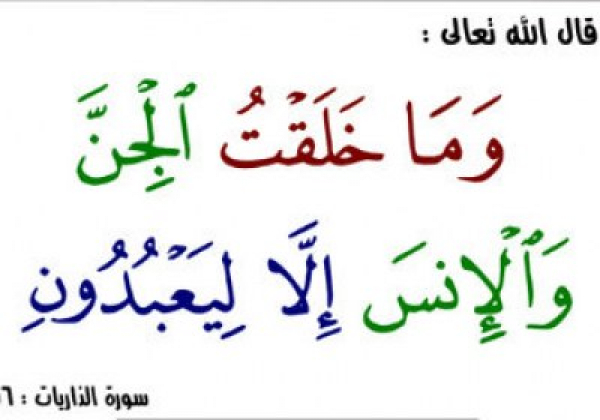 قال الله تعالى :
وَمَا خَلَقْتُ ٱلْجِنَّ
وَٱلْإِنسَ إِلَّا لِيَعْبُدُونِ
سورة الذاريات :